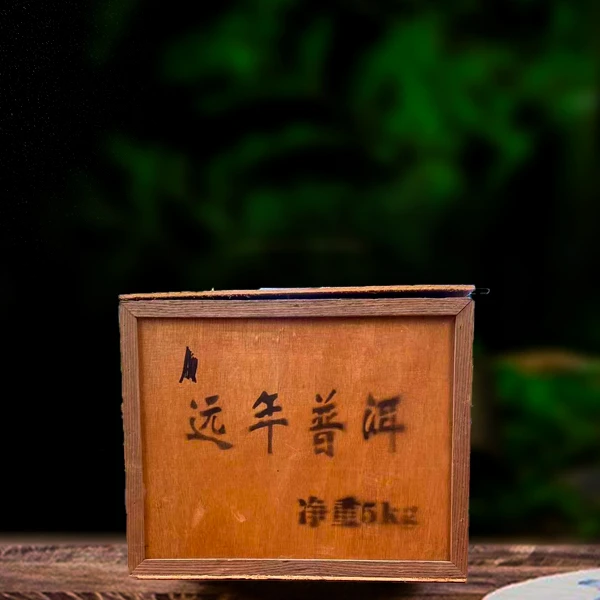 远年普洱
净重5kg